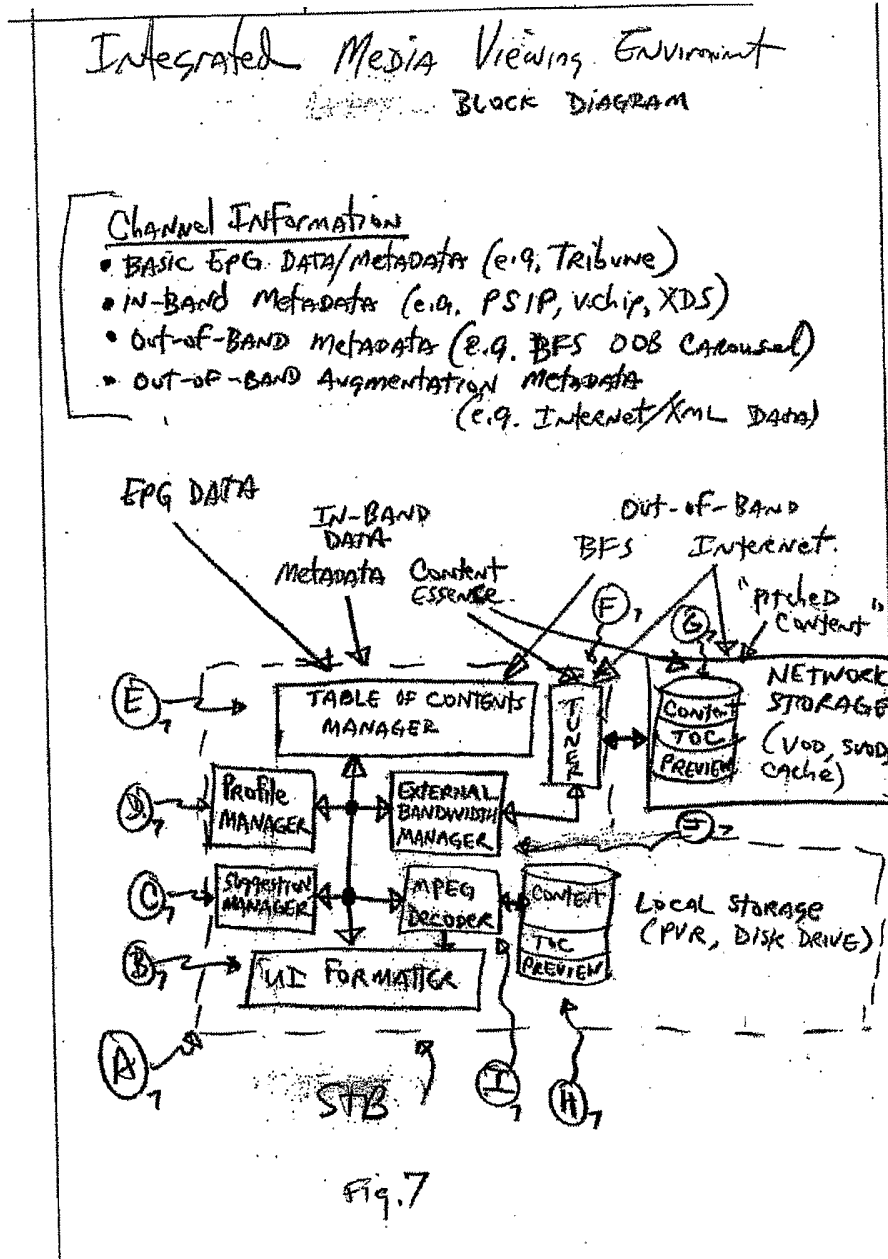 Integrated Media Viewing Envirnmint
BLOCK DIAGRAM
Channel Information
• BASIC EPG DATA/METADATA (e.g. TRIBUNE)
• IN-BAND METADATA (e.g. PSIP, V.chip, XDS)
• Out-of-BAND METADATA (e.g. BFS OOB CAROUSEL)
• OUT-OF-BAND AUGMENTATION METADATA
(e.g. INTERNET/XML DATA)
EPG DATA
IN-BAND
DATA
Metadata
Content
ESSENCE
Out-of-BAND
BFS
Internet
"Pitched
Content"
F7
G7
E7
TABLE OF CONTENTS
MANAGER
TUNER
Content
TOC
PREVIEW
NETWORK
STORAGE
(VOD, SVOD,
Cache)
D7
Profile
MANAGER
EXTERNAL
BANDWIDTH
MANAGER
J7
C7
Suggestion
MANAGER
MPEG
DECODER
CONTENT
TOC
PREVIEW
LOCAL STORAGE
(PVR, DISK DRIVE)
B7
UI FORMATTER
A7
STB
I7
H7
Fig. 7